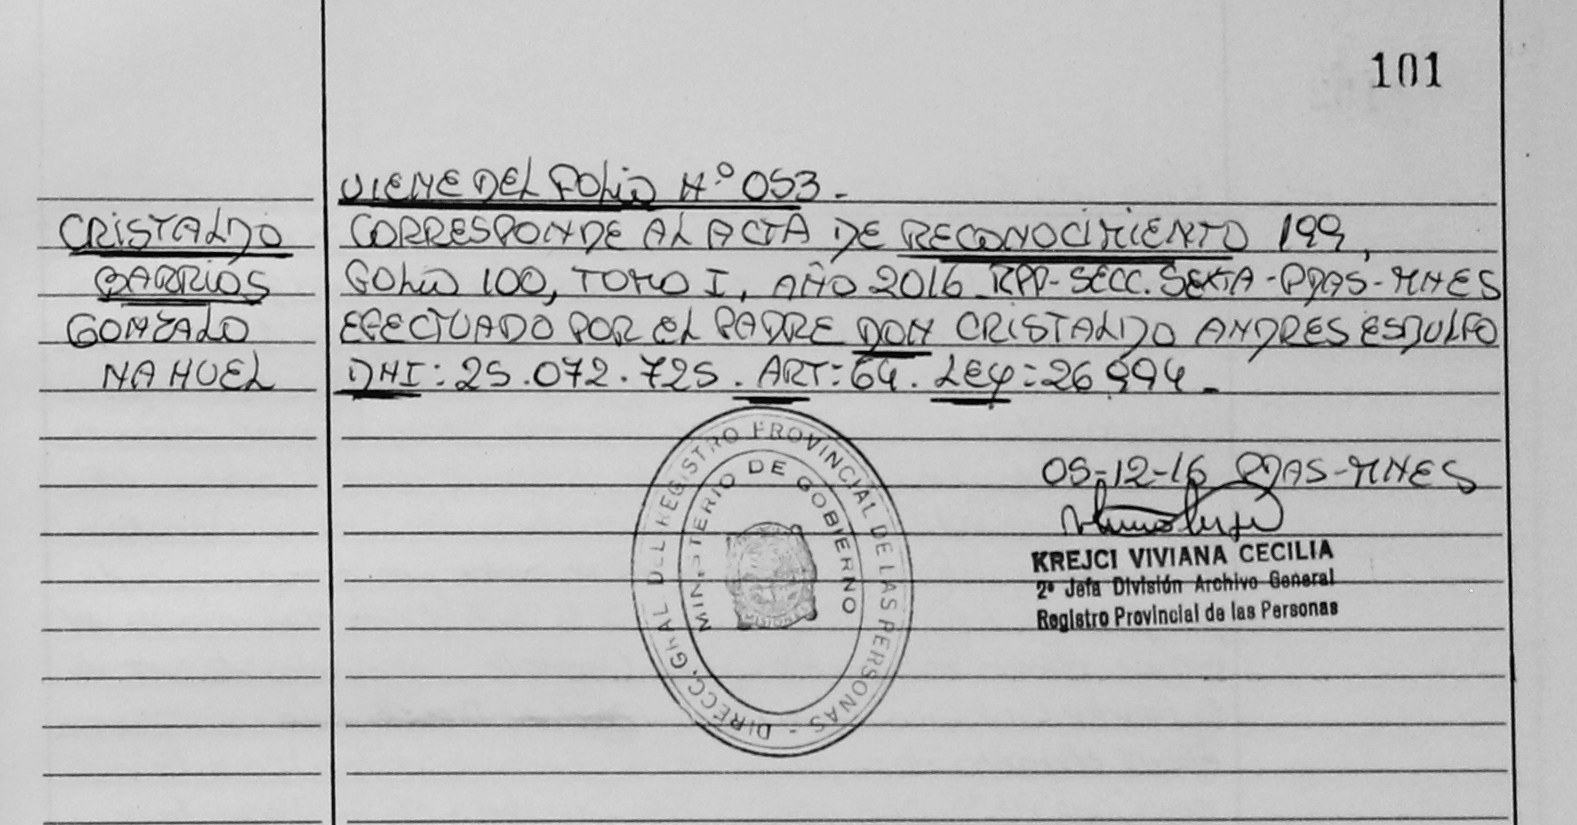 101
VIENE DEL FOLIO N.º 053.-
CRISTALDO
BARRIOS
GONZALO
NAHUEL
CORRESPONDE AL ACTA DE RECONOCIMIENTO 199,
FOLIO 100, TOMO I, AÑO 2016 RPP-SECC. SEXTA-PDAS-MNES
EFECTUADO POR EL PADRE DON CRISTALDO ANDRES ESDULFO
DNI: 25.072.725. ART: 64. LEY: 26994.-
DIRECC. GRAL DEL REGISTRO PROVINCIAL DE LAS PERSONAS -
MINISTERIO DE GOBIERNO
MISIONES
05-12-16 PDAS-MNES
KREJCI VIVIANA CECILIA
2ª Jefa División Archivo General
Registro Provincial de las Personas